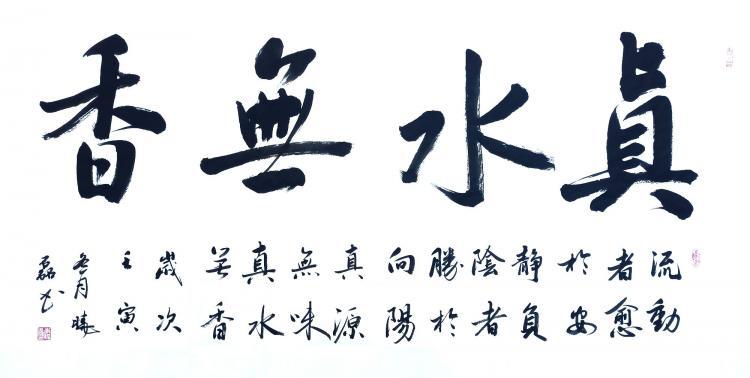 眞水無香
流動
者愈
於安
静負
陰者
勝於
向陽
真源
無味
真水
無香
歲次
壬寅
冬月曉
磊书